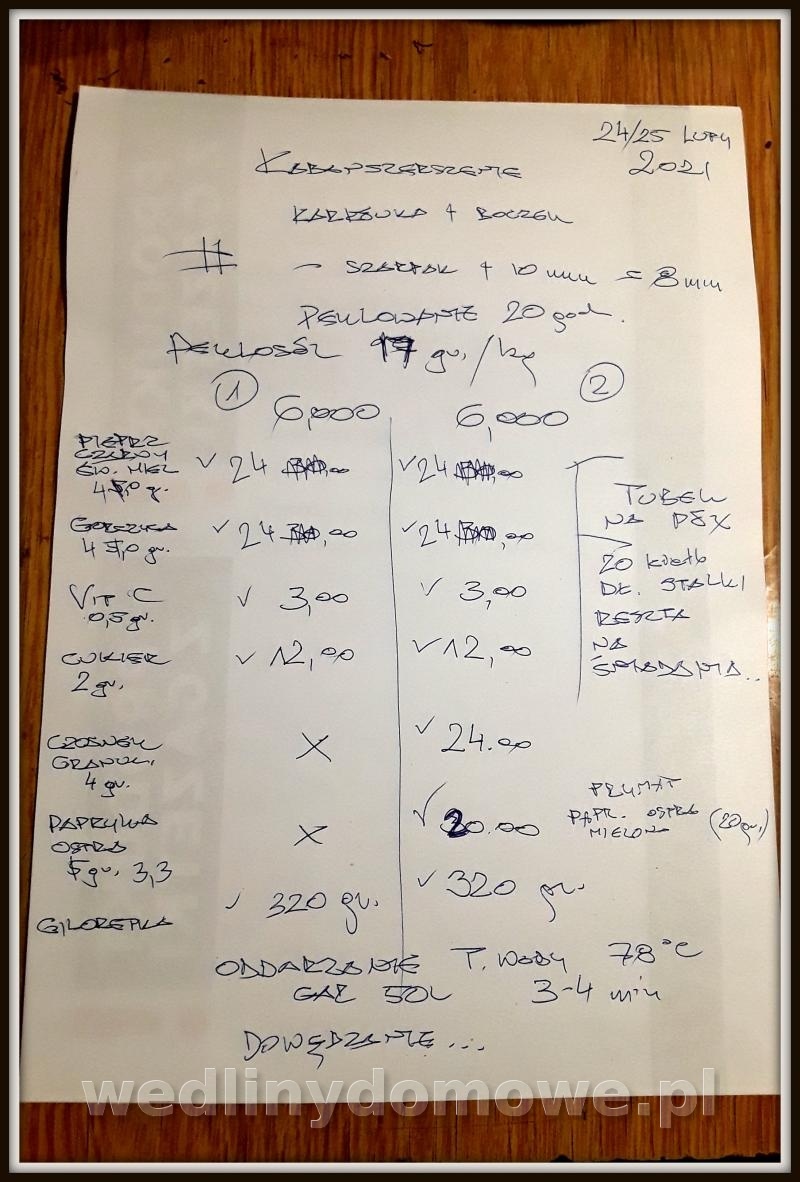 24/25 LUTY
2021
KABANSZERSZENIE
KARKÓWKA + BOCZEK
#1 - SZARPAK + 10 mm = 8 mm
PEKLOWANIE 20 god.
PEKLOSÓL 17 gr./kg
1 2
6,000 6,000
PIEPRZ
CZARNY
ŚW. MIEL
4,0 gr. ✓ 24,00 ✓ 24,00
GORCZYCA
4,0 gr. ✓ 24,00 ✓ 24,00
VIT C
0,5 gr. ✓ 3,00 ✓ 3,00
CUKIER
2 gr. ✓ 12,00 ✓ 12,00
CZOSNEK
GRANUL.
4 gr. X ✓ 24.00
PAPRYKA
OSTRA
5 gr. 3,3 X ✓ 20.00
320 gr. ✓ 320 gr.
TUBEK
NA PEX
20
DŁ. STALKI
RESZTA
NA
ŚNIADANIA..
PRYMAT
PAPR. OSTRA
MIELONA (20 gr.)
ODDARZANIE T. WODY 78°C
GAR 50L 3-4 min
DOWĘDZANIE...
wedlinydomowe.pl